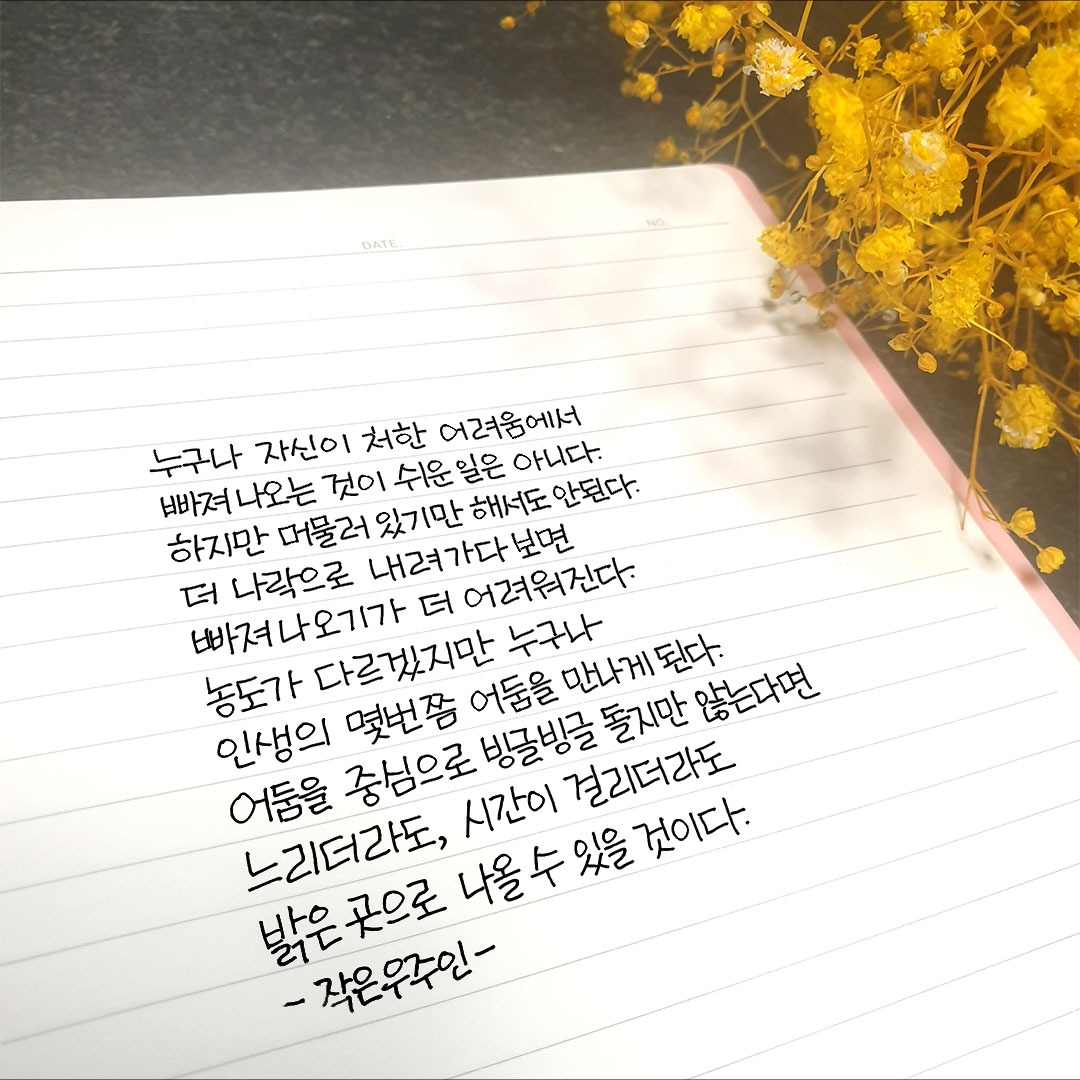 DATE.
NO.
누구나 자신이 처한 어려움에서
빠져나오는 것이 쉬운 일은 아니다.
하지만 머물러 있기만 해서도 안된다.
더 나락으로 내려가다 보면
빠져나오기가 더 어려워진다.
농도가 다르겠지만 누구나
인생의 몇번쯤 어둠을 만나게 된다.
어둠을 중심으로 빙글빙글 돌지만 않는다면
느리더라도, 시간이 걸리더라도
밝은 곳으로 나올 수 있을 것이다.
- 작은우주인 -